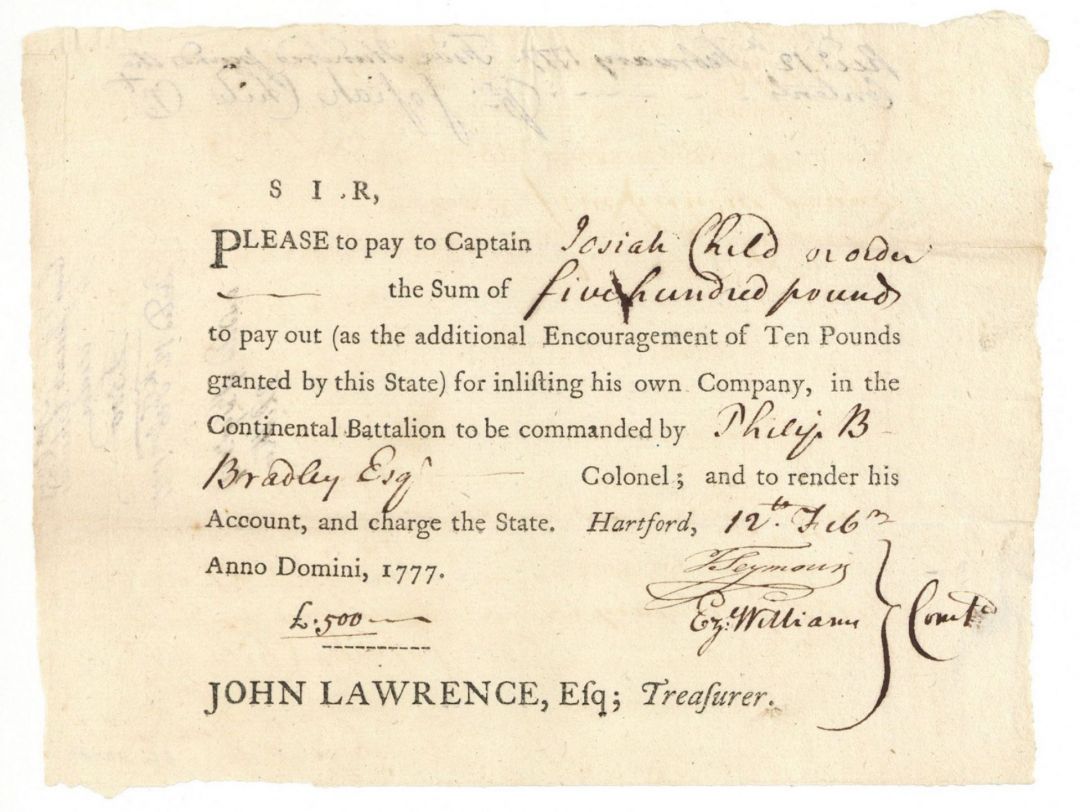 S I R,
PLEASE to pay to Captain Josiah Child or order
the Sum of five hundred pounds
to pay out (as the additional Encouragement of Ten Pounds
granted by this State) for inliſting his own Company, in the
Continental Battalion to be commanded by Philip B
Bradley Esqr Colonel; and to render his
Account, and charge the State. Hartford, 12th Febry
Anno Domini, 1777.
T Seymour
£:500 Ez: Williams } Comtee
JOHN LAWRENCE, Eſq; Treaſurer.